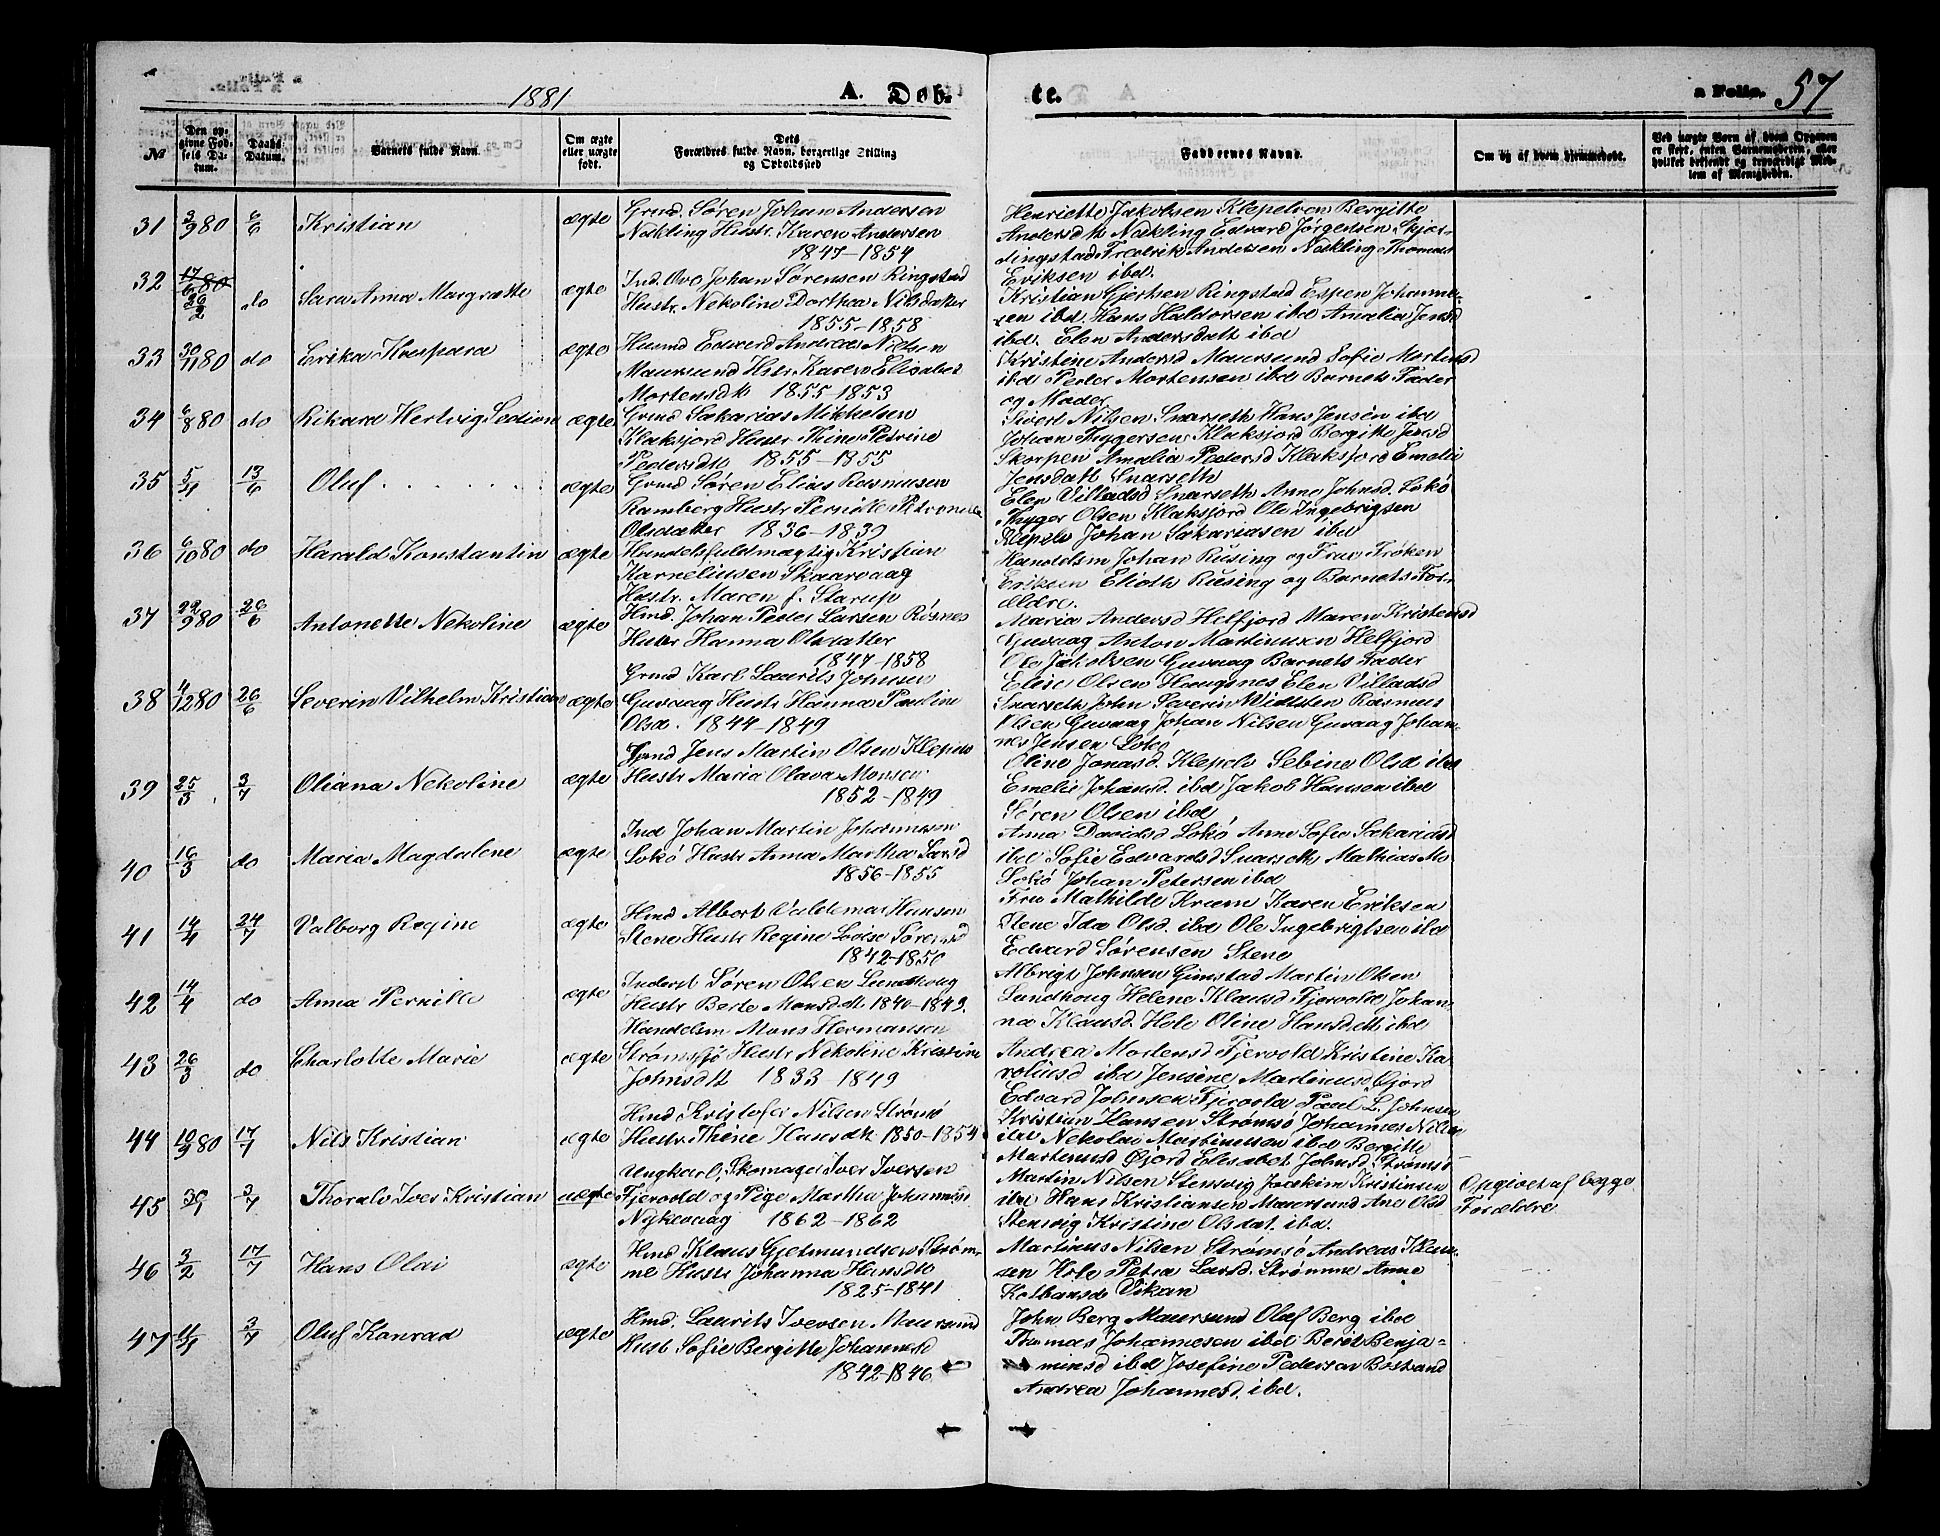 1881
A. Døb-
te.
a Folio. 57
№
Den opgivne Fødsels Datum.
Daabs Datum.
Barnets fulde Navn.
Om ægte eller uægte født.
Dets Forældres fulde Navn, borgerlige Stilling og Opholdssted
Faddernes Navne.
Om og af hvem hjemmedøbt.
Ved uægte Børn af hvem Opgaven er skeet, enten Barnemoderen, eller hvilket bekjendt og troværdigt Medlem af Menigheden.
31 3/9 80 6/6 Kristian ægte
Grmd. Søren Johan Andersen
Nøkling Hustr. Karen Andersen
1847-1854
Henriette Jakobsen Klepelven Bergitte
Andersdtr Nøkling Edvard Jørgensen Skjør-
dingstad Fredrik Andersen Nøkling Thomas
Eriksen ibd.
32 17/6 80 26/2 do Sara Anna Margrethe ægte
Ind. Ove Johan Sørensen Ringstad
Hustr. Nekoline Dorthea Nilsdatter
1855-1858
Kristian Gjertsen Ringstad Espen Johanne-
sen ibd. Hans Haldorsen ibd Amalia Jensd
ibd. Elen Andersdatt ibd
33 30/11 80 do Erika Kaspara ægte
Husmd Edvard Andreas Nielsen
Maursund Hstr Karen Elisabet
Mortensdtr 1855-1853
Kristine Andersd Maursund Sofie Mortensd
ibd Peder Mortensen ibd Barnets Fader
og Moder
34 6/8 80 do Rikard Hertvig Sedion ægte
Grmd Sakarias Mikkelsen
Klaksjord Hustr Thine Petrine
Pedersdtr 1855-1855
Sivert Nilsen Snarseth Hans Jensen ibd
Johan Thygersen Klaksjord Bergitte Jensd
Skorpen Amalia Pedersd Klaksjord Emelie
Jensdatt Snarseth
35 5/4 13/6 Oluf ægte
Grmd Søren Elias Rasmusen
Ramberg Hustr Pernille Petronella
Olsdatter 1836-1839
Elen Villadsd Snarseth Anne Johnsd. Lokø
Thyger Olsen Klaksjord Ole Ingebrigtsen
Klepelv Johan Sakariasen ibd
36 6/10 80 do Harald Konstantin ægte
Handelsfuldmægtig Kristian
Karneliussen Skaarvaag
Hustr. Maren f. Starup
Handelsm Johan Rusing og Frue Frøken
Eriksen Elioth Rusing og Barnets For-
ældre.
37 22/9 80 26/6 Antonette Nekoline ægte
Hmd. Johan Peder Larsen Røsnes
Hustr Hanna Olsdatter
1847-1858
Maria Andersd Helfjord Maren Kristensd
Guvaag Anton Martinusen Helfjord
Ole Jakobsen Guvaag Barnets Fader
38 4/12 80 26/6 Severin Vilhelm Kristian ægte
Grmd Karl Laurits Johnsen
Guvaag Hustr Hanna Pauline
Olsd. 1844-1849
Elise Olsen Haugsnes Elen Villadsd
Snarseth John Severin Widsten Rasmus
Olsen Guvaag Johan Nilsen Guvaag Johan-
nes Jensen Lokø
39 25/3 3/7 Oliana Nekoline ægte
Grmd Jens Martin Olsen Klepelv
Hustr Maria Olava Monsen
1852-1849
Oline Jonasd Klepelv Sebine Olsd ibd
Emelie Johansd. ibd Jakob Hansen ibd
Søren Olsen ibd
40 16/3 do Maria Magdalene ægte
Ind Johan Martin Johannesen
Lokø Hustr Anna Martha Larsd
1856-1855
Anna Davidsd Lokø Anne Sofie Sakariasd
ibd Sofie Edvardsd Snarseth Mathias M.
Lokø Johan Petersen ibd
41 14/4 24/7 Valborg Regine ægte
Hmd Albert Valdemar Hansen
Stene Hustr Regine Lovise Sørensd
1842-1850
Fru Mathilde Krum Karen Eriksen
Stene Ida Olsd. ibd Ole Ingebrigtsen ibd
Edvard Sørensen Stene
42 14/4 do Anna Pernille ægte
Inderst Søren Olsen Lundhoug
Hustr Berte Monsdtr 1840-1849.
Albrigt Johnsen Gimstad Martin Olsen
Lundhoug Helene Klausd Fjervold Johan-
na Klausd. Hole Oline Hansdtt ibd
43 26/3 do Charlotte Marie ægte
Handelsm Mons Hermansen
Strømsø Hustr Nekoline Kristine
Johnsdtr 1833-1849
Andrea Mortensd Fjervold Kristine Ka-
rolinsd ibd Jensine Martinusd Øjord
Edvard Johnsen Fjervold Paul L. Johnsen
44 10/9 80 17/7 Nils Kristian ægte
Hmd Kristofer Nilsen Strømsø
Hustr. Thrine Hansdtr 1850-1854
Kristian Hansen Strømsø Johannes Nilsen
ibd Nekolai Martinusen ibd Bergitte
Martinusd Øjord Elisabet Johnsd. Strømsø
45 30/1 3/7 Thoralv Iver Kristian uægte
Ungkarl, Skomager Iver Iversen
Fjervold og Pige Martha Johannesd
Nykvaag 1862-1862
Martin Nilsen Stensvig Joakim Kristensen
ibd Hans Kristiansen Maursund Ane Olsd
Stensvig Kristine Olsdat. ibd.
Opgivet af begge
Forældre
46 3/2 17/7 Hans Olai ægte
Hmd Klaus Gjetmundsen Strøm-
me Hustr Johanna Hansdtr
1825-1841
Martinus Nilsen Strømsø Andreas Klau-
sen Hole Petra Larsd. Strømme Anne
Kolbansd Vikan
47 11/3 3/7 Oluf Konrad ægte
Hmd. Laurits Iversen Maursund
Hust Sofie Bergitte Johannesd
1842-1846
John Berg Maursund Olaf Berg ibd
Thomas Johannesen ibd Berit Benja-
minsd ibd Josefine Pedersen Bostrand
Andrea Johannesd. ibd.